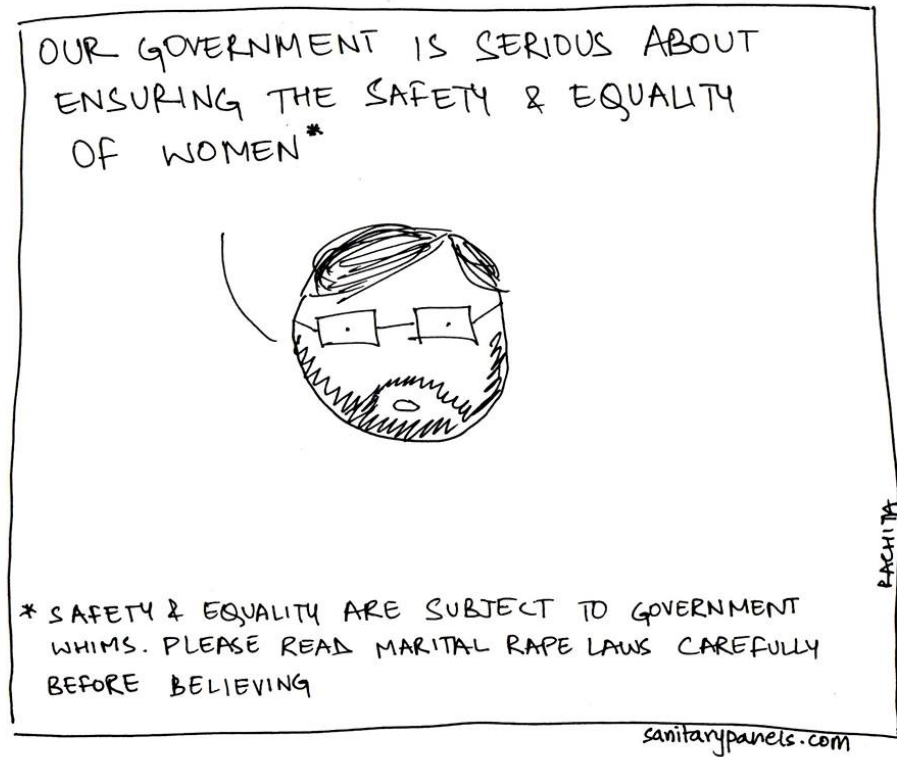 OUR GOVERNMENT IS SERIOUS ABOUT
ENSURING THE SAFETY & EQUALITY
OF WOMEN*
* SAFETY & EQUALITY ARE SUBJECT TO GOVERNMENT
WHIMS. PLEASE READ MARITAL RAPE LAWS CAREFULLY
BEFORE BELIEVING
RACHITA
sanitarypanels.com